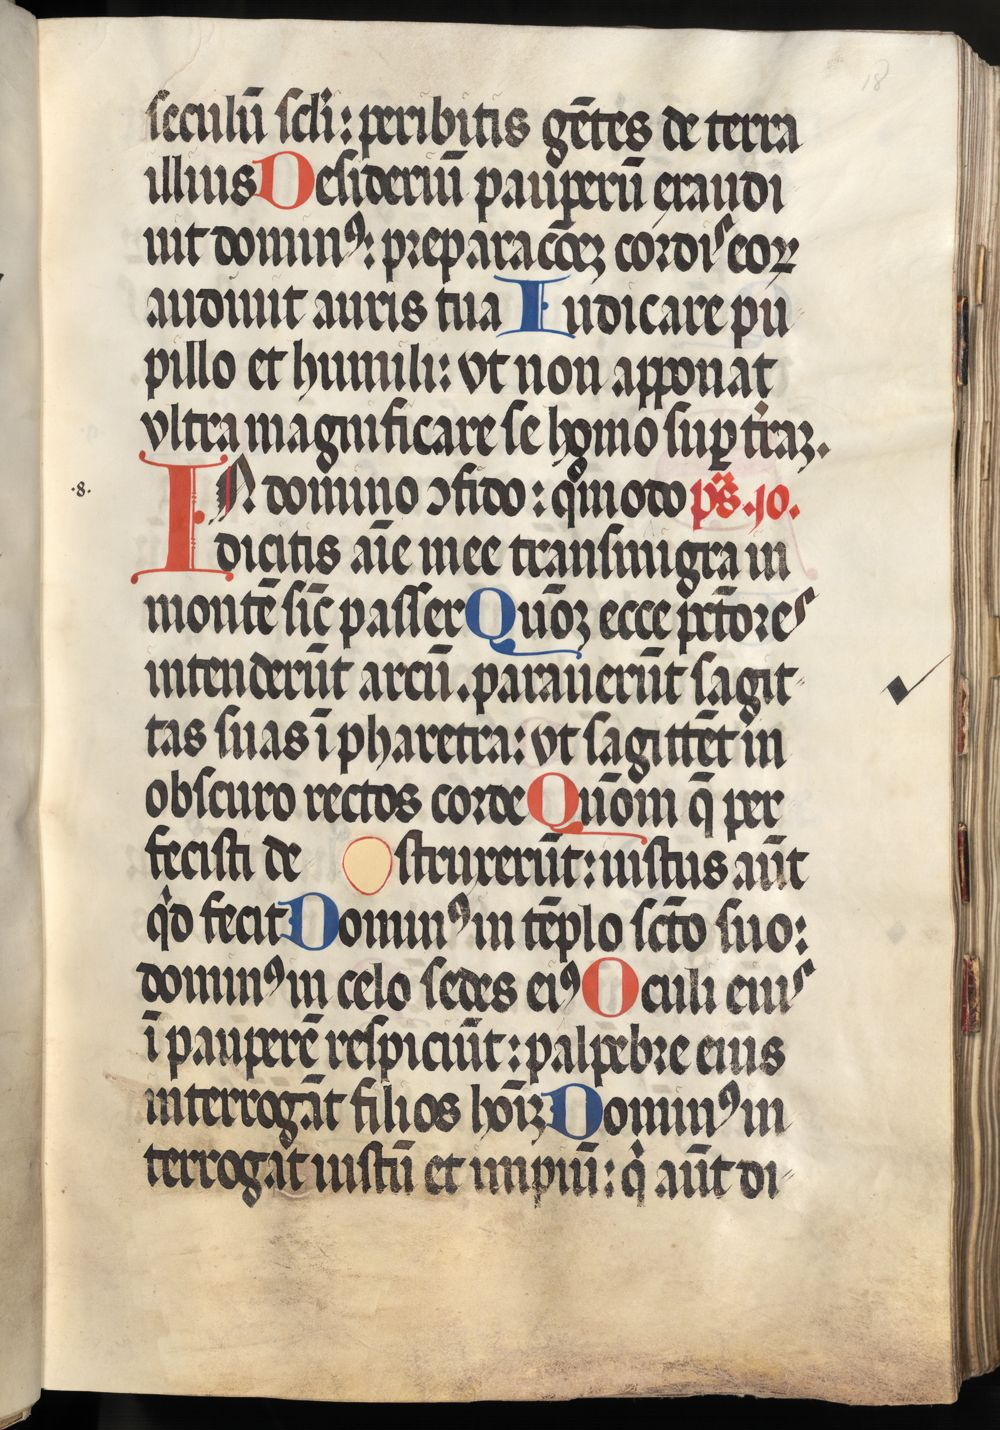 18
seculū scl̄i: peribitis gētes de terra
illius Desideriū pauperū exaudi
uit dominꝰ: preparacōeꝫ cordis eoꝝ
audiuit auris tua Iudicare pu
pillo et humili: vt non apponat
vltra magnificare se homo suꝑ t̄raꝫ.
.8.
IN domino ↄfido: quōmodo ps̄. 10.
dicitis aīe mee transmigra in
montē sic̄ passer Qūoꝫ ecce pctōres
intenderūt arcū. parauerūt sagit-
tas suas ī pharetra: vt sagittēt in
obscuro rectos corde Qūom q̄ per
fecisti de ostruxerūt: iustus aūt
qͥd fecit Dominꝰ in tēplo scto suo:
dominꝰ in celo sedes eiꝰ Oculi eius
ī pauperē respiciūt: palpebre eius
interrogāt filios hoīꝫ Dominꝰ in
terrogat iustū et impiū: qͥ aūt di-